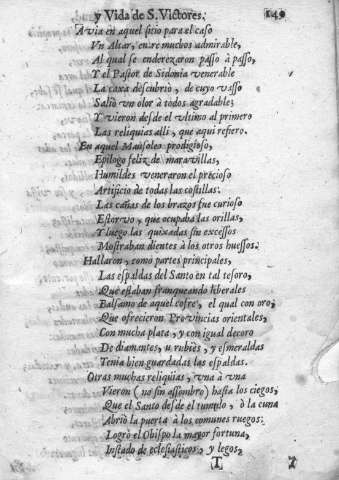 y Vida de S. Victores. 149
Avia en aquel sitio para el caso
Vn Altar, entre muchos admirable,
Al qual se enderezaron passo à passo,
Y el Pastor de Sidonia venerable
La caxa descubriò, de cuyo vasso
Saliò vn olor à todos agradable;
Y vieron desde el vltimo al primero
Las reliquias alli, que aqui refiero.
En aquel Mausoleo prodigioso,
Epilogo feliz de maravillas,
Humildes veneraron el precioso
Artificio de todas las costillas:
Las cañas de los brazos fue curioso
Estorvo, que ocupaba las orillas,
Y luego las quixadas sin excessos
Mostraban dientes à los otros huessos.
Hallaron, como partes principales,
Las espaldas del Santo en tal tesoro,
Que estaban franqueando liberales
Balsamo de aquel cofre, el qual con oro,
Que ofrecieron Provincias orientales,
Con mucha plata, y con igual decoro
De diamantes, u rubies, y esmeraldas
Tenia bien guardadas las espaldas.
Otras muchas reliquias, vna à vna
Vieron (no sin assombro) hasta los ciegos,
Que el Santo desde el tumulo, ò la cuna
Abriò la puerta à los comunes ruegos:
Logrò el Obispo la mayor fortuna,
Instado de eclesiasticos, y legos,
T